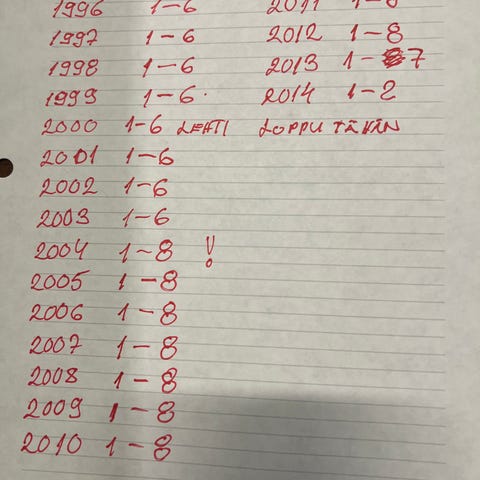 1996 1-6 2011 1-8
1997 1-6 2012 1-8
1998 1-6 2013 1-7
1999 1-6. 2014 1-2
2000 1-6 LEHTI LOPPU TÄHÄN
2001 1-6
2002 1-6
2003 1-6
2004 1-8 !
2005 1-8
2006 1-8
2007 1-8
2008 1-8
2009 1-8
2010 1-8